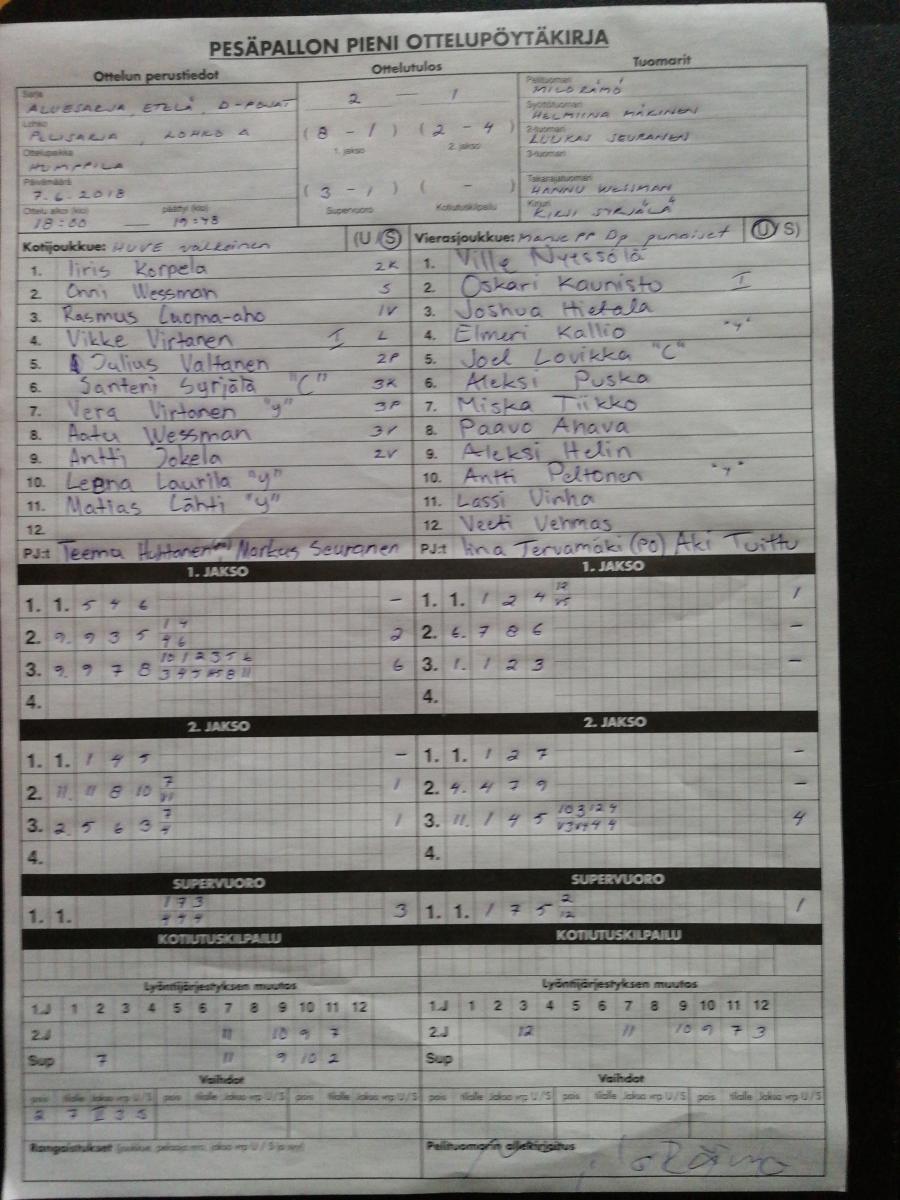 PESÄPALLON PIENI OTTELUPÖYTÄKIRJA
Ottelun perustiedot Ottelutulos Tuomarit
Sarja ALUESARJA, ETELÄ, D-POJAT 2 — 1 Pelituomari MILO RÄMÖ
Lohko PLLISARJA, LOHKO A (8 - 1) (2 - 4) Syöttötuomari HELMIINA MÄKINEN
1. jakso 2. jakso 2-tuomari LUUKAS SEURANEN
Ottelupaikka HUMPPILA 3-tuomari
Päivämäärä 7.6.2018 (3 - 1) ( - ) Takarajatuomari HANNU WESSMAN
Ottelu alkoi (klo) 18:00 — päättyi (klo) 19:48 Supervuoro Kotiutuskilpailu Kirjuri KIRSI SYRJÄLÄ
Kotijoukkue: HUVE valkoinen (U/S) Vierasjoukkue: Manse PP Dp punaiset (U/S)
1. Iiris Korpela 2K 1. Ville Nyyssölä
2. Onni Wessman S 2. Oskari Kaunisto I
3. Rasmus Luoma-aho 1V 3. Joshua Hietala
4. Vikke Virtanen I L 4. Elmeri Kallio "y"
5. Julius Valtanen 2P 5. Joel Lovikka "C"
6. Santeri Syrjälä "C" 3K 6. Aleksi Puska
7. Vera Virtanen "y" 3P 7. Miska Tiikko
8. Aatu Wessman 3V 8. Paavo Ahava
9. Antti Jokela 2V 9. Aleksi Helin
10. Leena Laurila "y" 10. Antti Peltonen "y"
11. Matias Lähti "y" 11. Lassi Vinha
12. 12. Veeti Vehmas
PJ:t Teemu Huhtanen Markus Seuranen PJ:t Iina Tervamäki (PO) Aki Tuittu
1. JAKSO 1. JAKSO
1. 1. 5 4 6 – 1. 1. 1 2 4 12 1
2. 9. 9 3 5 1 4 2 2. 6. 7 8 6 –
4 6
3. 9. 9 7 8 10 1 2 3 5 6 6 3. 1. 1 2 3 –
4. 4.
2. JAKSO 2. JAKSO
1. 1. 1 4 5 – 1. 1. 1 2 7 –
2. 11. 11 8 10 7 1 2. 4. 4 7 9 –
3. 2. 5 6 3 7 1 3. 11. 1 4 5 10 3 12 4 4
4. 4.
SUPERVUORO SUPERVUORO
1. 1. 1 7 3 3 1. 1. 1 7 5 2 1
4 4 4 12
KOTIUTUSKILPAILU KOTIUTUSKILPAILU
Lyöntijärjestyksen muutos Lyöntijärjestyksen muutos
1.J 1 2 3 4 5 6 7 8 9 10 11 12 1.J 1 2 3 4 5 6 7 8 9 10 11 12
2.J 11 10 9 7 2.J 12 11 10 9 7 3
Sup 7 11 9 10 2 Sup
Vaihdot Vaihdot
pois tilalle Jakso vrp U/S pois tilalle Jakso vrp U/S pois tilalle Jakso vrp U/S pois tilalle Jakso vrp U/S pois tilalle Jakso vrp U/S pois tilalle Jakso vrp U/S
2 7 I 3 S
Rangaistukset Pelituomarin allekirjoitus